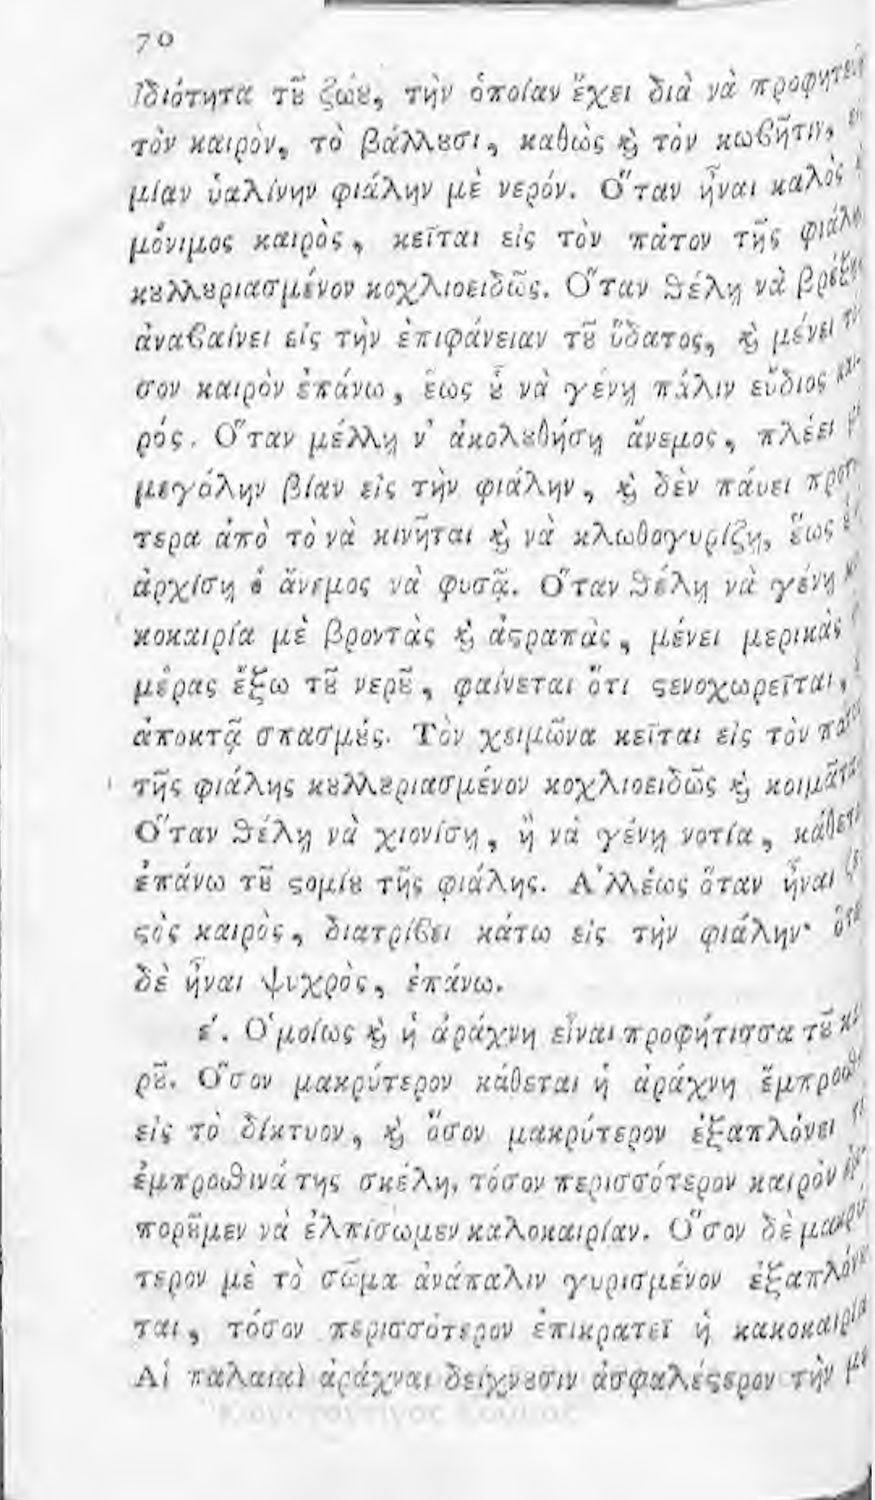 70
ἰδιότητα τȣ͂ ζώȣ, τὴν ὁποίαν ἔχει διὰ νὰ
τὸν καιρὸν, τὸ βάλλȣσι, καθὼς ϗ̀ τὸν κωβῆτιν,
μίαν ὑαλίνην φιάλην μὲ νερόν. Ὅταν ἦναι καλὸς
μόνιμος καιρὸς, κεῖται εἰς τὸν πάτον τῆς
κȣλλȣριασμένον κοχλιοειδῶς. Ὅταν θέλῃ νὰ
ἀναβαίνει εἰς τὴν ἐπιφάνειαν τȣ͂ ὕδατος, ϗ̀ μένει
σον καιρὸν ἐπάνω, ἕως ȣ̔͂ νὰ γένῃ πάλιν εὔδιος και-
ρός. Ὅταν μέλλῃ ν' ἀκολȣθήσῃ ἄνεμος, πλέει
μεγάλην βίαν εἰς τὴν φιάλην, ϗ̀ δὲν παύει
τερα ἀπὸ τὸ νὰ κινῆται ϗ̀ νὰ κλωθογυρίζῃ, ἕως
ἀρχίσῃ ὁ ἄνεμος νὰ φυσᾷ. Ὅταν θέλῃ νὰ γένῃ
κοκαιρία μὲ βροντὰς ϗ̀ ἀϛραπὰς, μένει μερικὰς
μέρας ἔξω τȣ͂ νερȣ͂, φαίνεται ὅτι ϛενοχωρεῖται,
ἀποκτᾷ σπασμȣ́ς. Τὸν χειμῶνα κεῖται εἰς τὸν
τῆς φιάλης κȣλλȣριασμένον κοχλιοειδῶς ϗ̀
Ὅταν θέλῃ νὰ χιονίσῃ, ἢ νὰ γένῃ νοτία,
ἐπάνω τȣ͂ ϛομίȣ τῆς φιάλης. Ἀλλέως ὅταν ἦναι
ϛὸς καιρὸς, διατρίβει κάτω εἰς τὴν φιάλην·
δὲ ἦναι ψυχρὸς, ἐπάνω.
ε'. Ὁμοίως ϗ̀ ἡ ἀράχνη εἶναι προφήτισσα τȣ͂
ρȣ͂. Ὅσον μακρύτερον κάθεται ἡ ἀράχνη
εἰς τὸ δίκτυον, ϗ̀ ὅσον μακρύτερον ἐξαπλόνει
ἐμπροσθινά της σκέλη, τόσον περισσότερον καιρὸν
πορȣ͂μεν νὰ ἐλπίσωμεν καλοκαιρίαν. Ὅσον δὲ μακρύ
τερον μὲ τὸ σῶμα ἀνάπαλιν γυρισμένον
ται, τόσον περισσότερον ἐπικρατεῖ ἡ κακοκαιρία
Αἱ παλαιαὶ ἀράχναι δείχνȣσιν ἀσφαλέϛερον τὴν